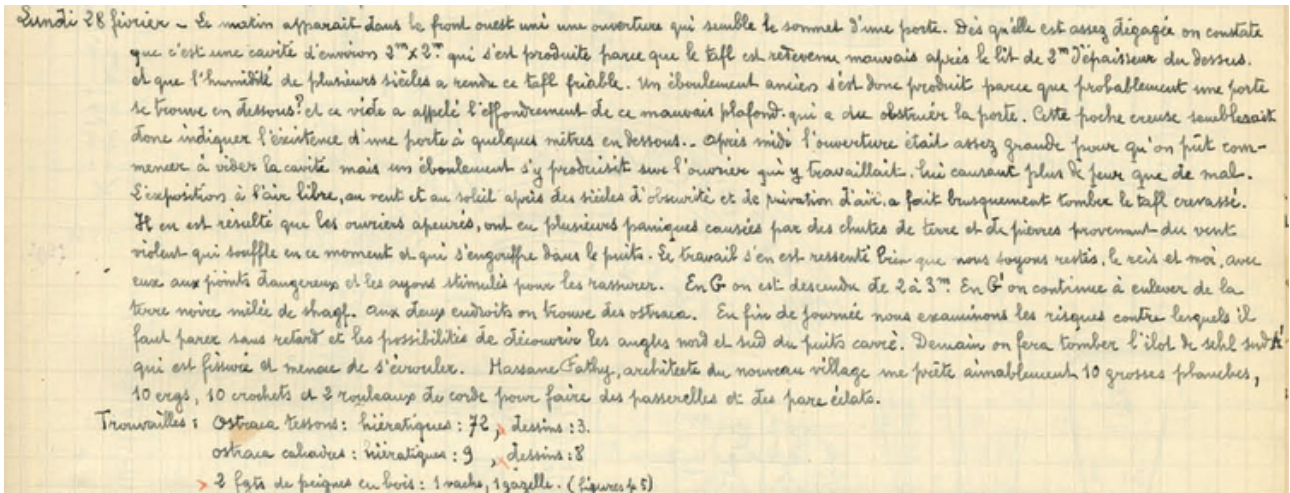 Lundi 28 février - Le matin apparait dans le front ouest uni une ouverture qui semble le sommet d'une porte. Dès qu'elle est assez dégagée on constate
que c'est une cavité d'environ 2m x 2m qui s'est produite parce que le tafl est redevenu mauvais après le lit de 2m d'épaisseur du dessus.
et que l'humidité de plusieurs siècles a rendu ce tafl friable. Un éboulement ancien s'est donc produit parce que probablement une porte
se trouve en dessous? et ce vide a appelé l'effondrement de ce mauvais plafond. qui a du obstruer la porte. Cette poche creuse semblerait
donc indiquer l'existence d'une porte à quelques mètres en dessous.. Après midi l'ouverture était assez grande pour qu'on pût com-
mencer à vider la cavité mais un éboulement s'y produisit sur l'ouvrier qui y travaillait. lui causant plus de peur que de mal.
L'exposition à l'air libre, au vent et au soleil après des siècles d'obscurité et de privation d'air, a fait brusquement tomber le tafl crevassé.
Il en est résulté que les ouvriers apeurés, ont eu plusieurs paniques causées par des chutes de terre et de pierres provenant du vent
violent qui souffle en ce moment et qui s'engouffre dans le puits. Le travail s'en est ressenti bien que nous soyons restés, le reis et moi, avec
eux aux points dangereux et les ayons stimulés pour les rassurer. En G on est descendu de 2 à 3m. En G' on continue à enlever de la
terre noire mêlée de shagf. aux deux endroits on trouve des ostraca. En fin de journée nous examinons les risques contre lesquels il
faut parer sans retard et les possibilités de découvrir les angles nord et sud du puits carré. Demain on fera tomber l'ilot de sehl sud A'
qui est fissuré et menace de s'écrouler. Hassane Fathy, architecte du nouveau village me prête aimablement 10 grosses planches,
10 ergs, 10 crochets et 2 rouleaux de corde pour faire des passerelles et des pare éclats.
Trouvailles : Ostraca tessons : hiératiques : 72, dessins : 3.
ostraca calcaires : hiératiques : 9, dessins : 8
2 fgts de peignes en bois : 1 vache, 1 gazelle. (figures p. 5)